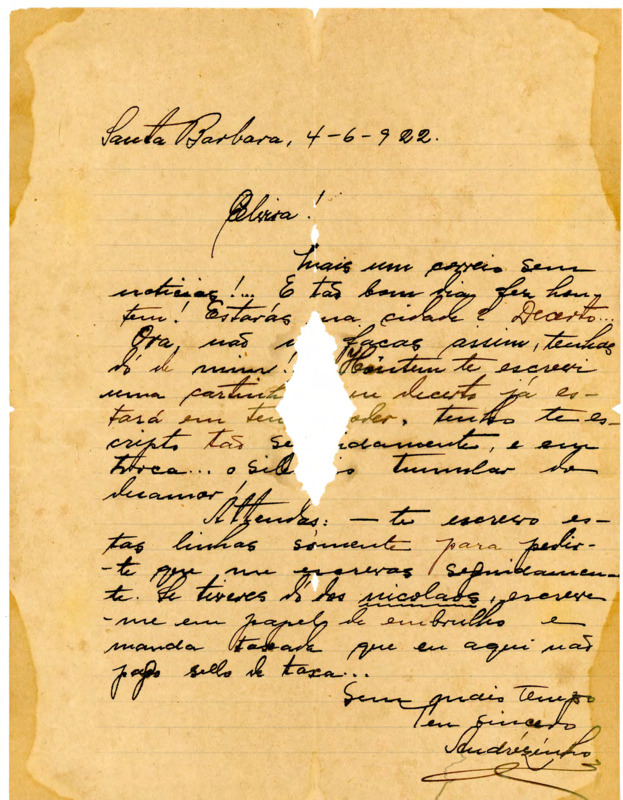 Santa Barbara, 4-6-922.
Elvira!
Mais um correio sem
noticias!... E tão bom dia, fez hon-
tem! Estarás na cidade? Decerto...
Ora, não faças assim, tenhas
dó de mim! Hontem te escrevi
uma cartinh que decerto já es-
tará em teu oder, tenho te es-
cripto tão se idamente, e em
troca... o sil io tumular do
desamor!
Attendas: — te escrevo es-
tas linhas sómente para pedir-
-te que me escrevas seguidamen-
te. Se tiveres dó dos nicolaos, escreve
-me em papel de embrulho e
manda taxada que eu aqui não
pago sello de taxa...
Sem mais tempo
Teu sincero
Andrézinho